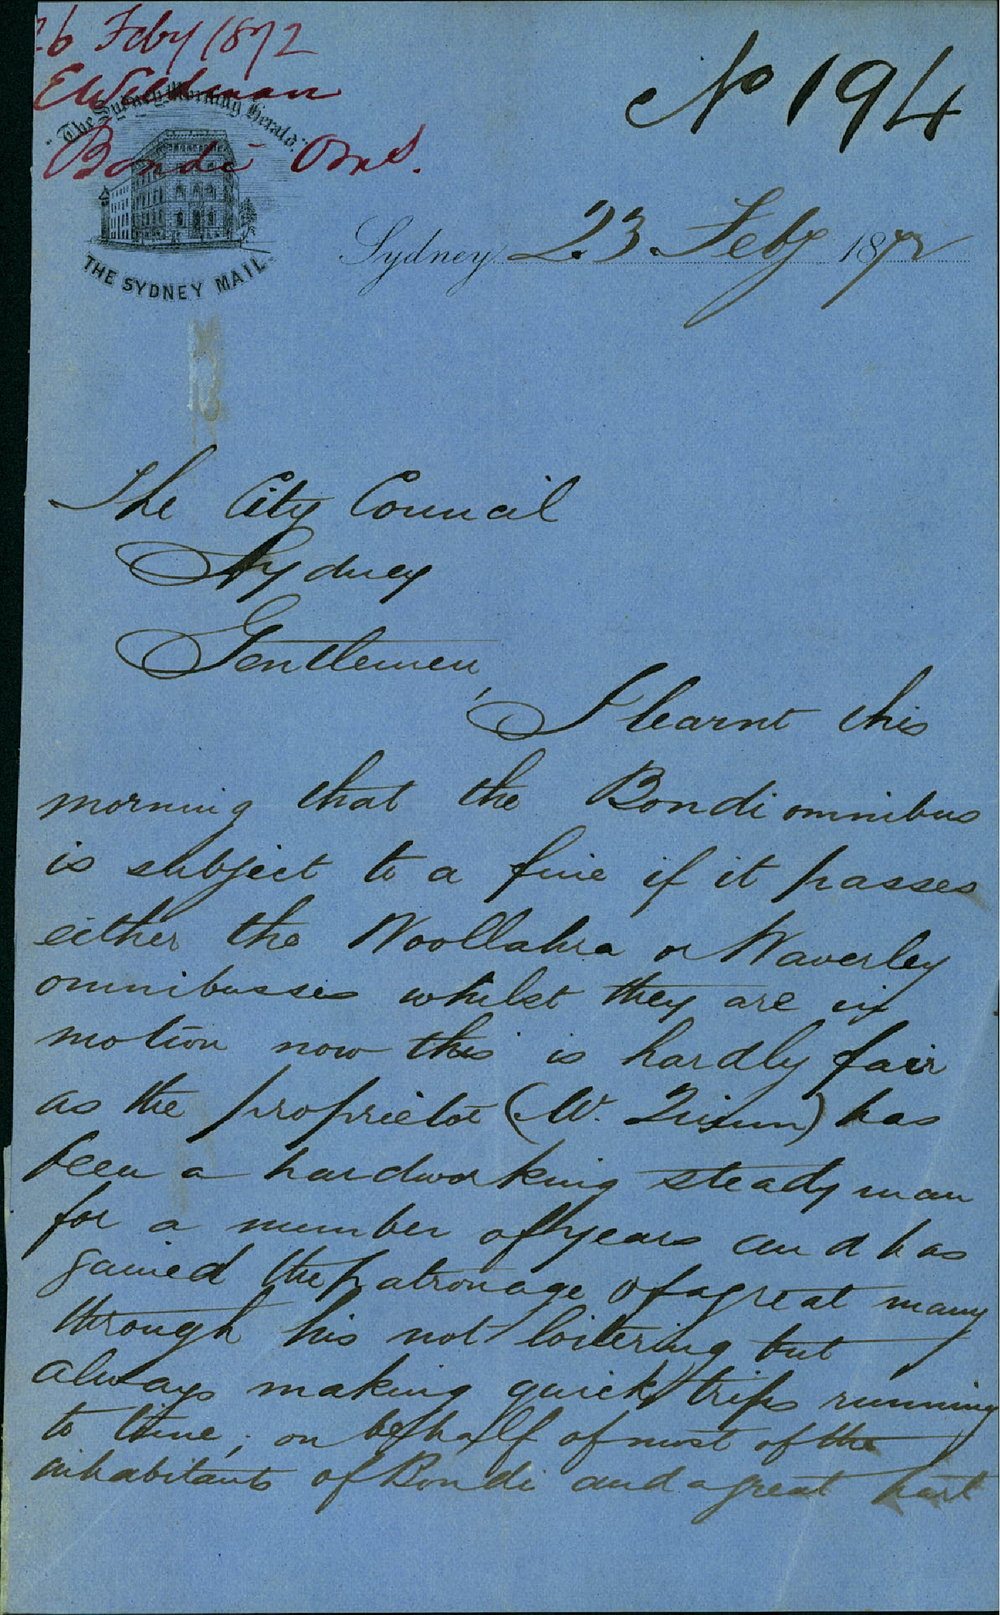 26 Feby 1872
E Wildman
Bondi Oms.
No 194
"The Sydney Morning Herald."
THE SYDNEY MAIL.
Sydney 23 Feby 1872
The City Council
Sydney
Gentlemen,
I learnt this
morning that the Bondi omnibus
is subject to a fine if it passes
either the Woollahra or Waverley
omnibusses whilst they are in
motion now this is hardly fair
as the proprietor (W. ) has
been a hardworking steady man
for a number of years and has
gained the patronage of a great many
through his not loitering but
always making quick trips running
to time; on behalf of most of the
inhabitants of Bondi and a great part